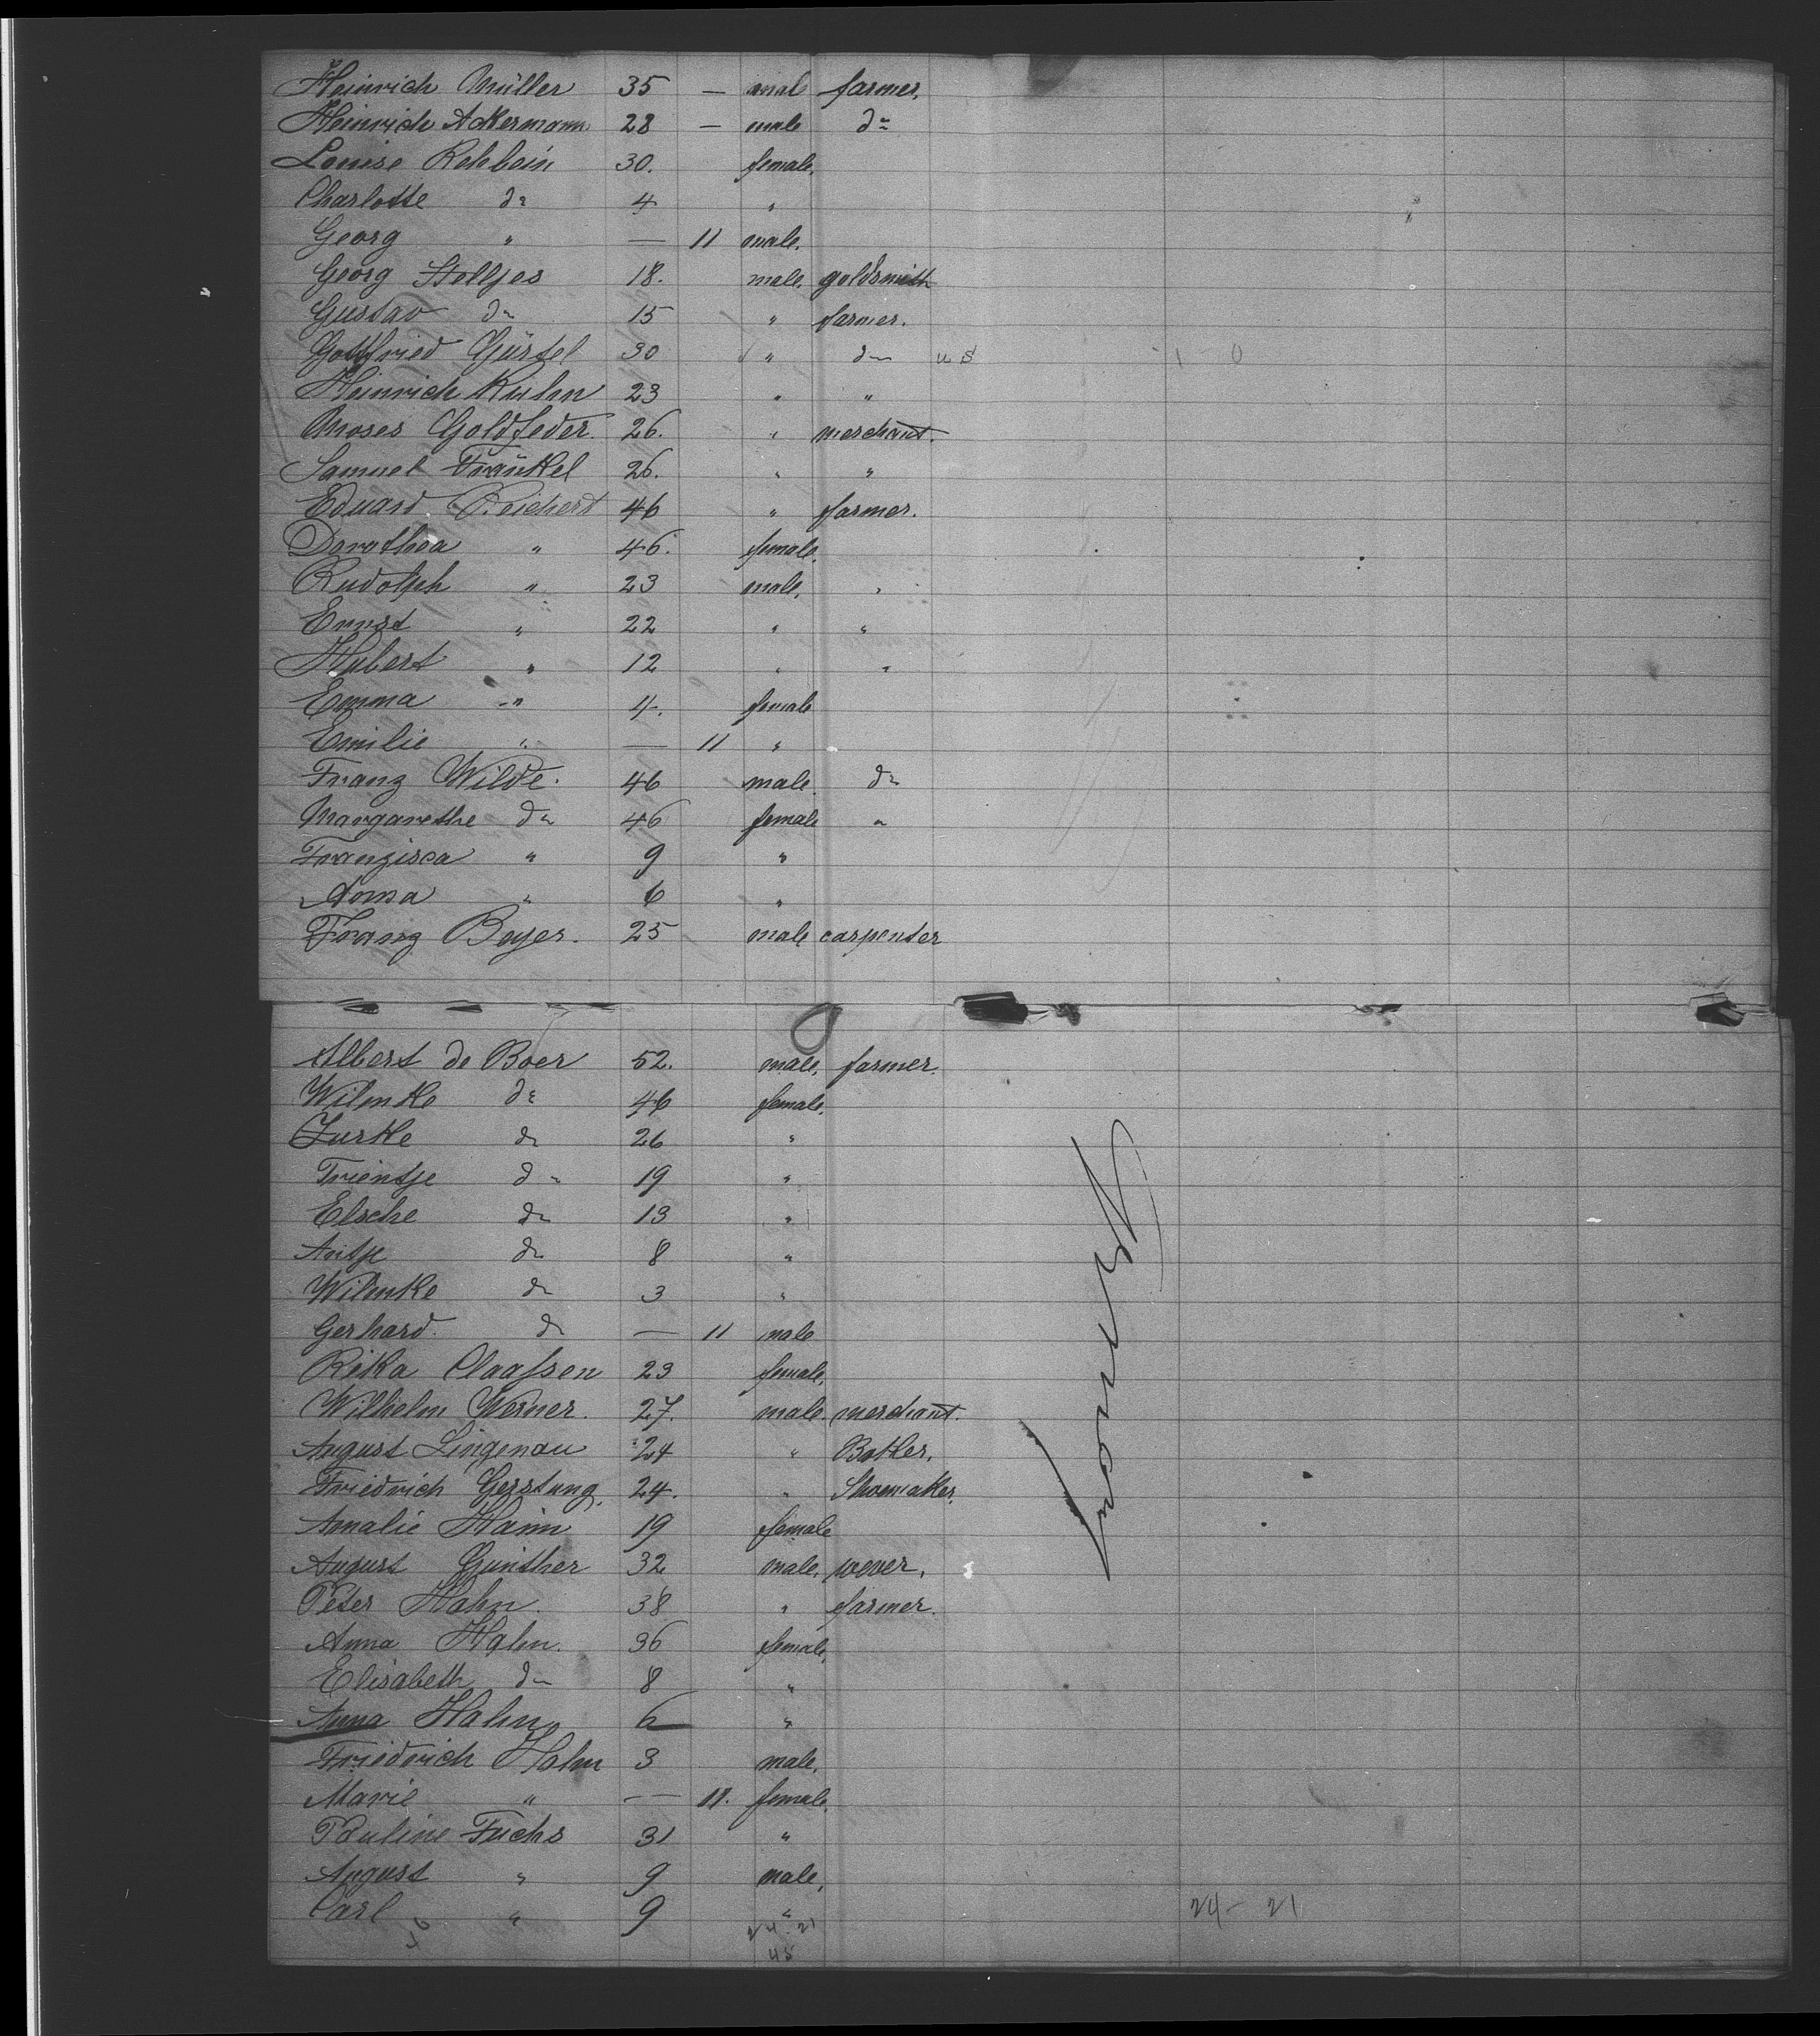 Heinrich Müller 35 — male farmer.
Heinrich Ackermann 28 — male do
Louise Rehbein 30. female.
Charlotte do 4 "
Georg " — 11 male.
Georg Stelljes 18. male. goldsmith
Gustav do 15 " farmer.
Gottfried Gürtel 30 " do U S 1 0
Heinrich Kuhn 23 " "
Moses Goldfeder. 26. " merchant.
Samuel Fränkel 26. " "
Eduard Reichert 46 " farmer.
Dorothea " 46. female.
Rudolph " 23 male. "
Ernst " 22 " "
Hubert " 12 " "
Emma " 4. female
Emilie " — 11 "
Franz Wilde. 46 male. do
Margarethe do 46 female "
Franzisca " 9 "
Anna " 6 "
Franz Beyer. 25 male carpenter
Albert de Boer 52. male. farmer.
Wilmke do 46 female.
Jurke do 26 "
Trientje do 19 "
Elsche do 13 "
Antje do 8 "
Wilmke do 3 "
Gerhard. do — 11 male
Rikka Claassen 23 female.
Wilhelm Werner. 27. male. merchant.
August Lingenau 24 " Baker.
Friedrich Gerstung. 24. " Shoemaker.
Amalie Hann 19 female
August Gunther 32 male. wever.
Peter Hahn. 38 " farmer.
Anna Hahn. 36 female.
Elisabeth do 8 "
Anna Hahn 6 "
Friederich Hahn 3 male.
Marie " — 11. female.
Pauline Fuchs 31 "
August " 9 male.
Carl " 9 " 24 - 21
24 21
45
Germany